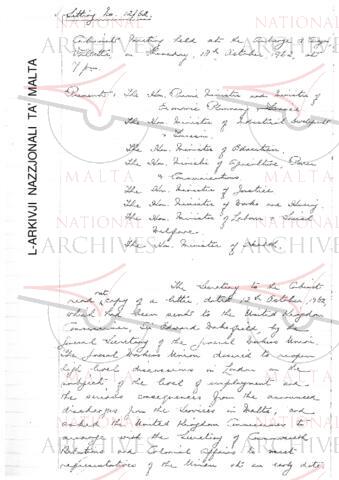 Sitting No. 12/62.
Cabinet Meeting held at the Auberge d'Aragon
Valletta, on Thursday, 18th October, 1962, at
7 pm.
Present: The Hon. Prime Minister and Minister of
Economic Planning & Finance
The Hon. Minister of Industrial Development
& Tourism.
The Hon. Minister of Education.
The Hon. Minister of Agriculture, Power
& Communications.
The Hon. Minister of Justice
The Hon. Minister of Works and Housing.
The Hon. Minister of Labour & Social
Welfare.
The Hon. Minister of Health.
The Secretary to the Cabinet
read out a copy of a letter, dated 12th October, 1962,
which had been sent to the United Kingdom
Commissioner, Sir Edward Wakefield, by the
General Secretary of the General Workers Union.
The General Workers Union desired to reopen
high level discussions in London on the
subject of the level of employment and
the serious consequences from the announced
discharges from the Services in Malta, and
asked the United Kingdom Commissioner to
with the Secretary of Commonwealth
Relations and Colonial Affairs to meet
representatives of the Union at an early date
L-ARKIVJI NAZZJONALI TA' MALTA
NATIONAL
ARCHIVES